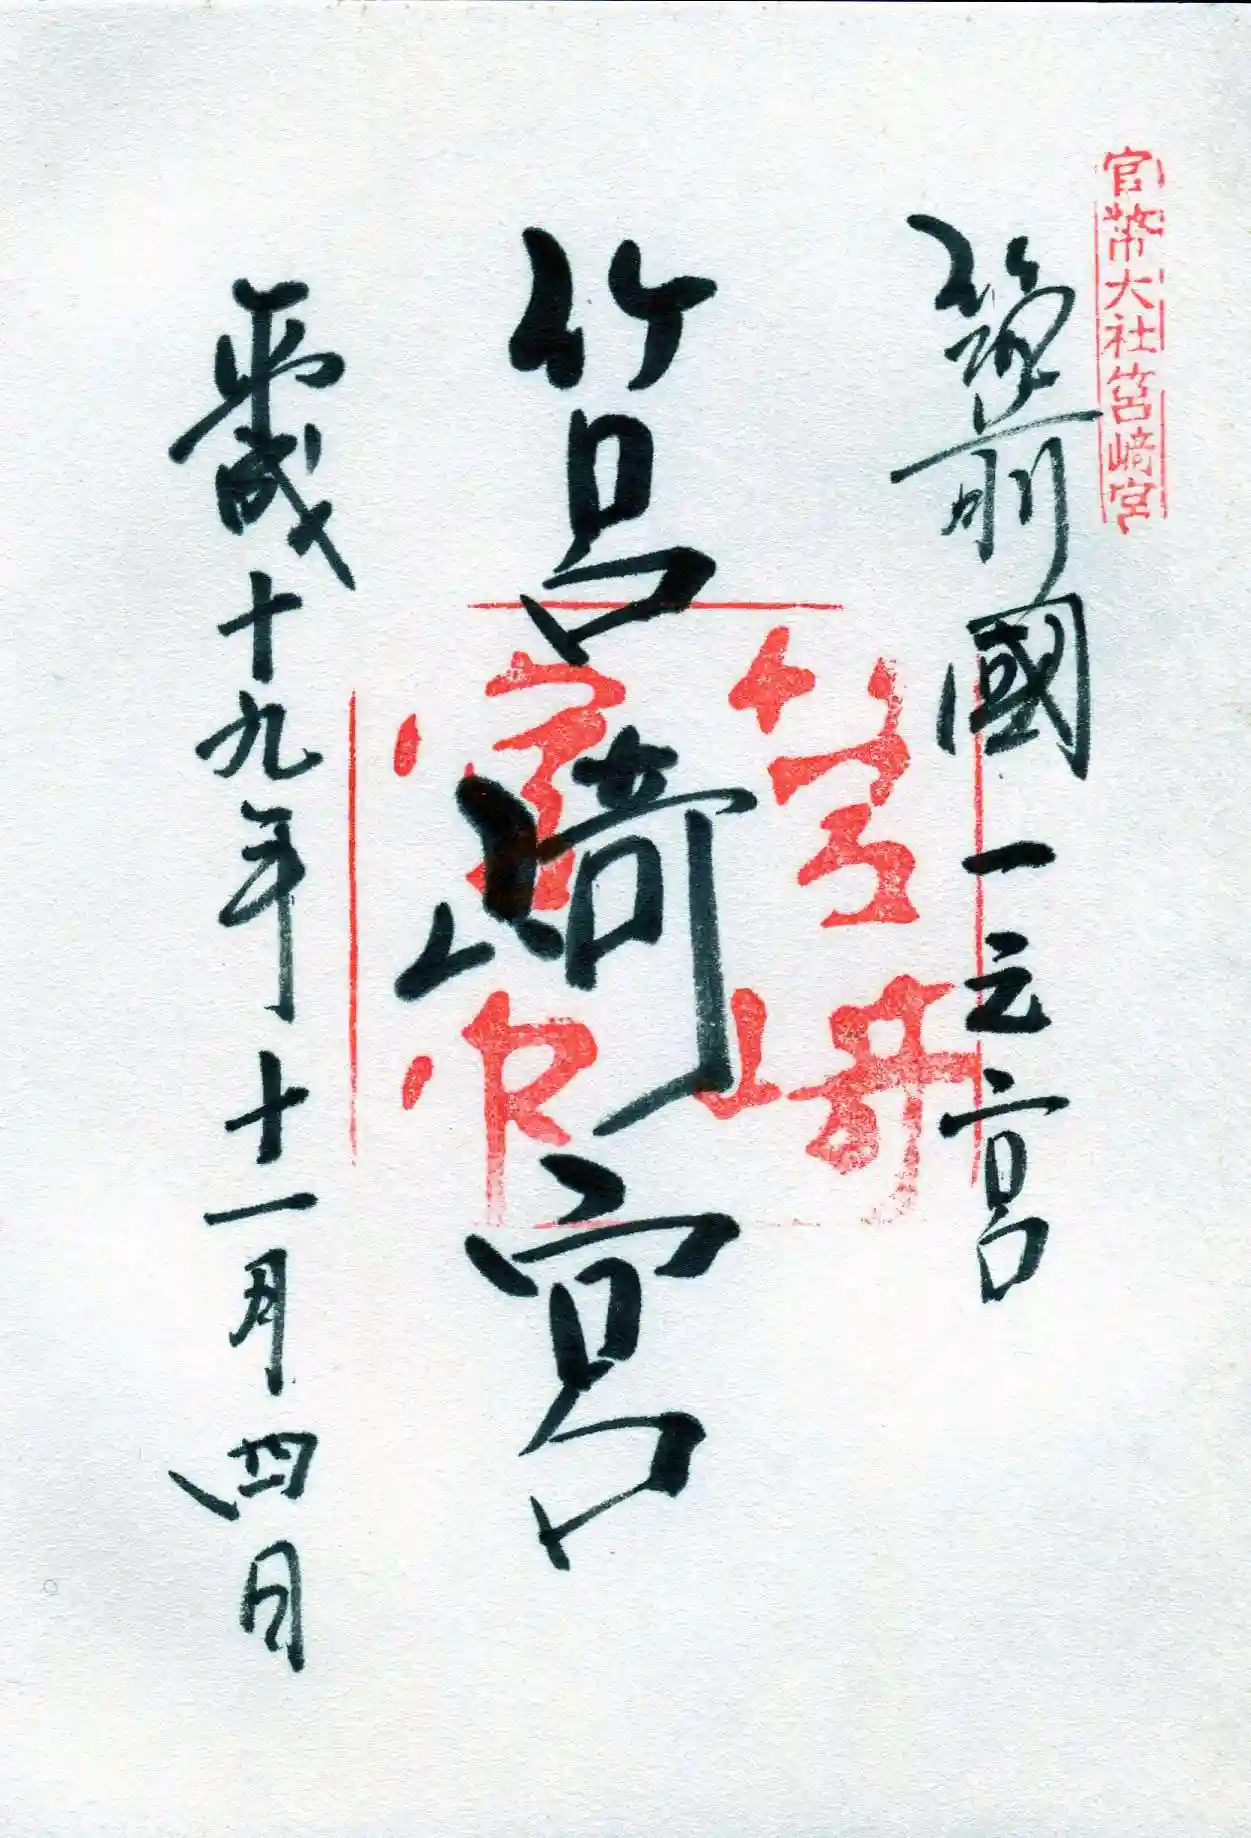 官幣大社筥崎宮
筑前國一之宮
筥崎宮
筥崎
宮印
平成十九年十一月四日